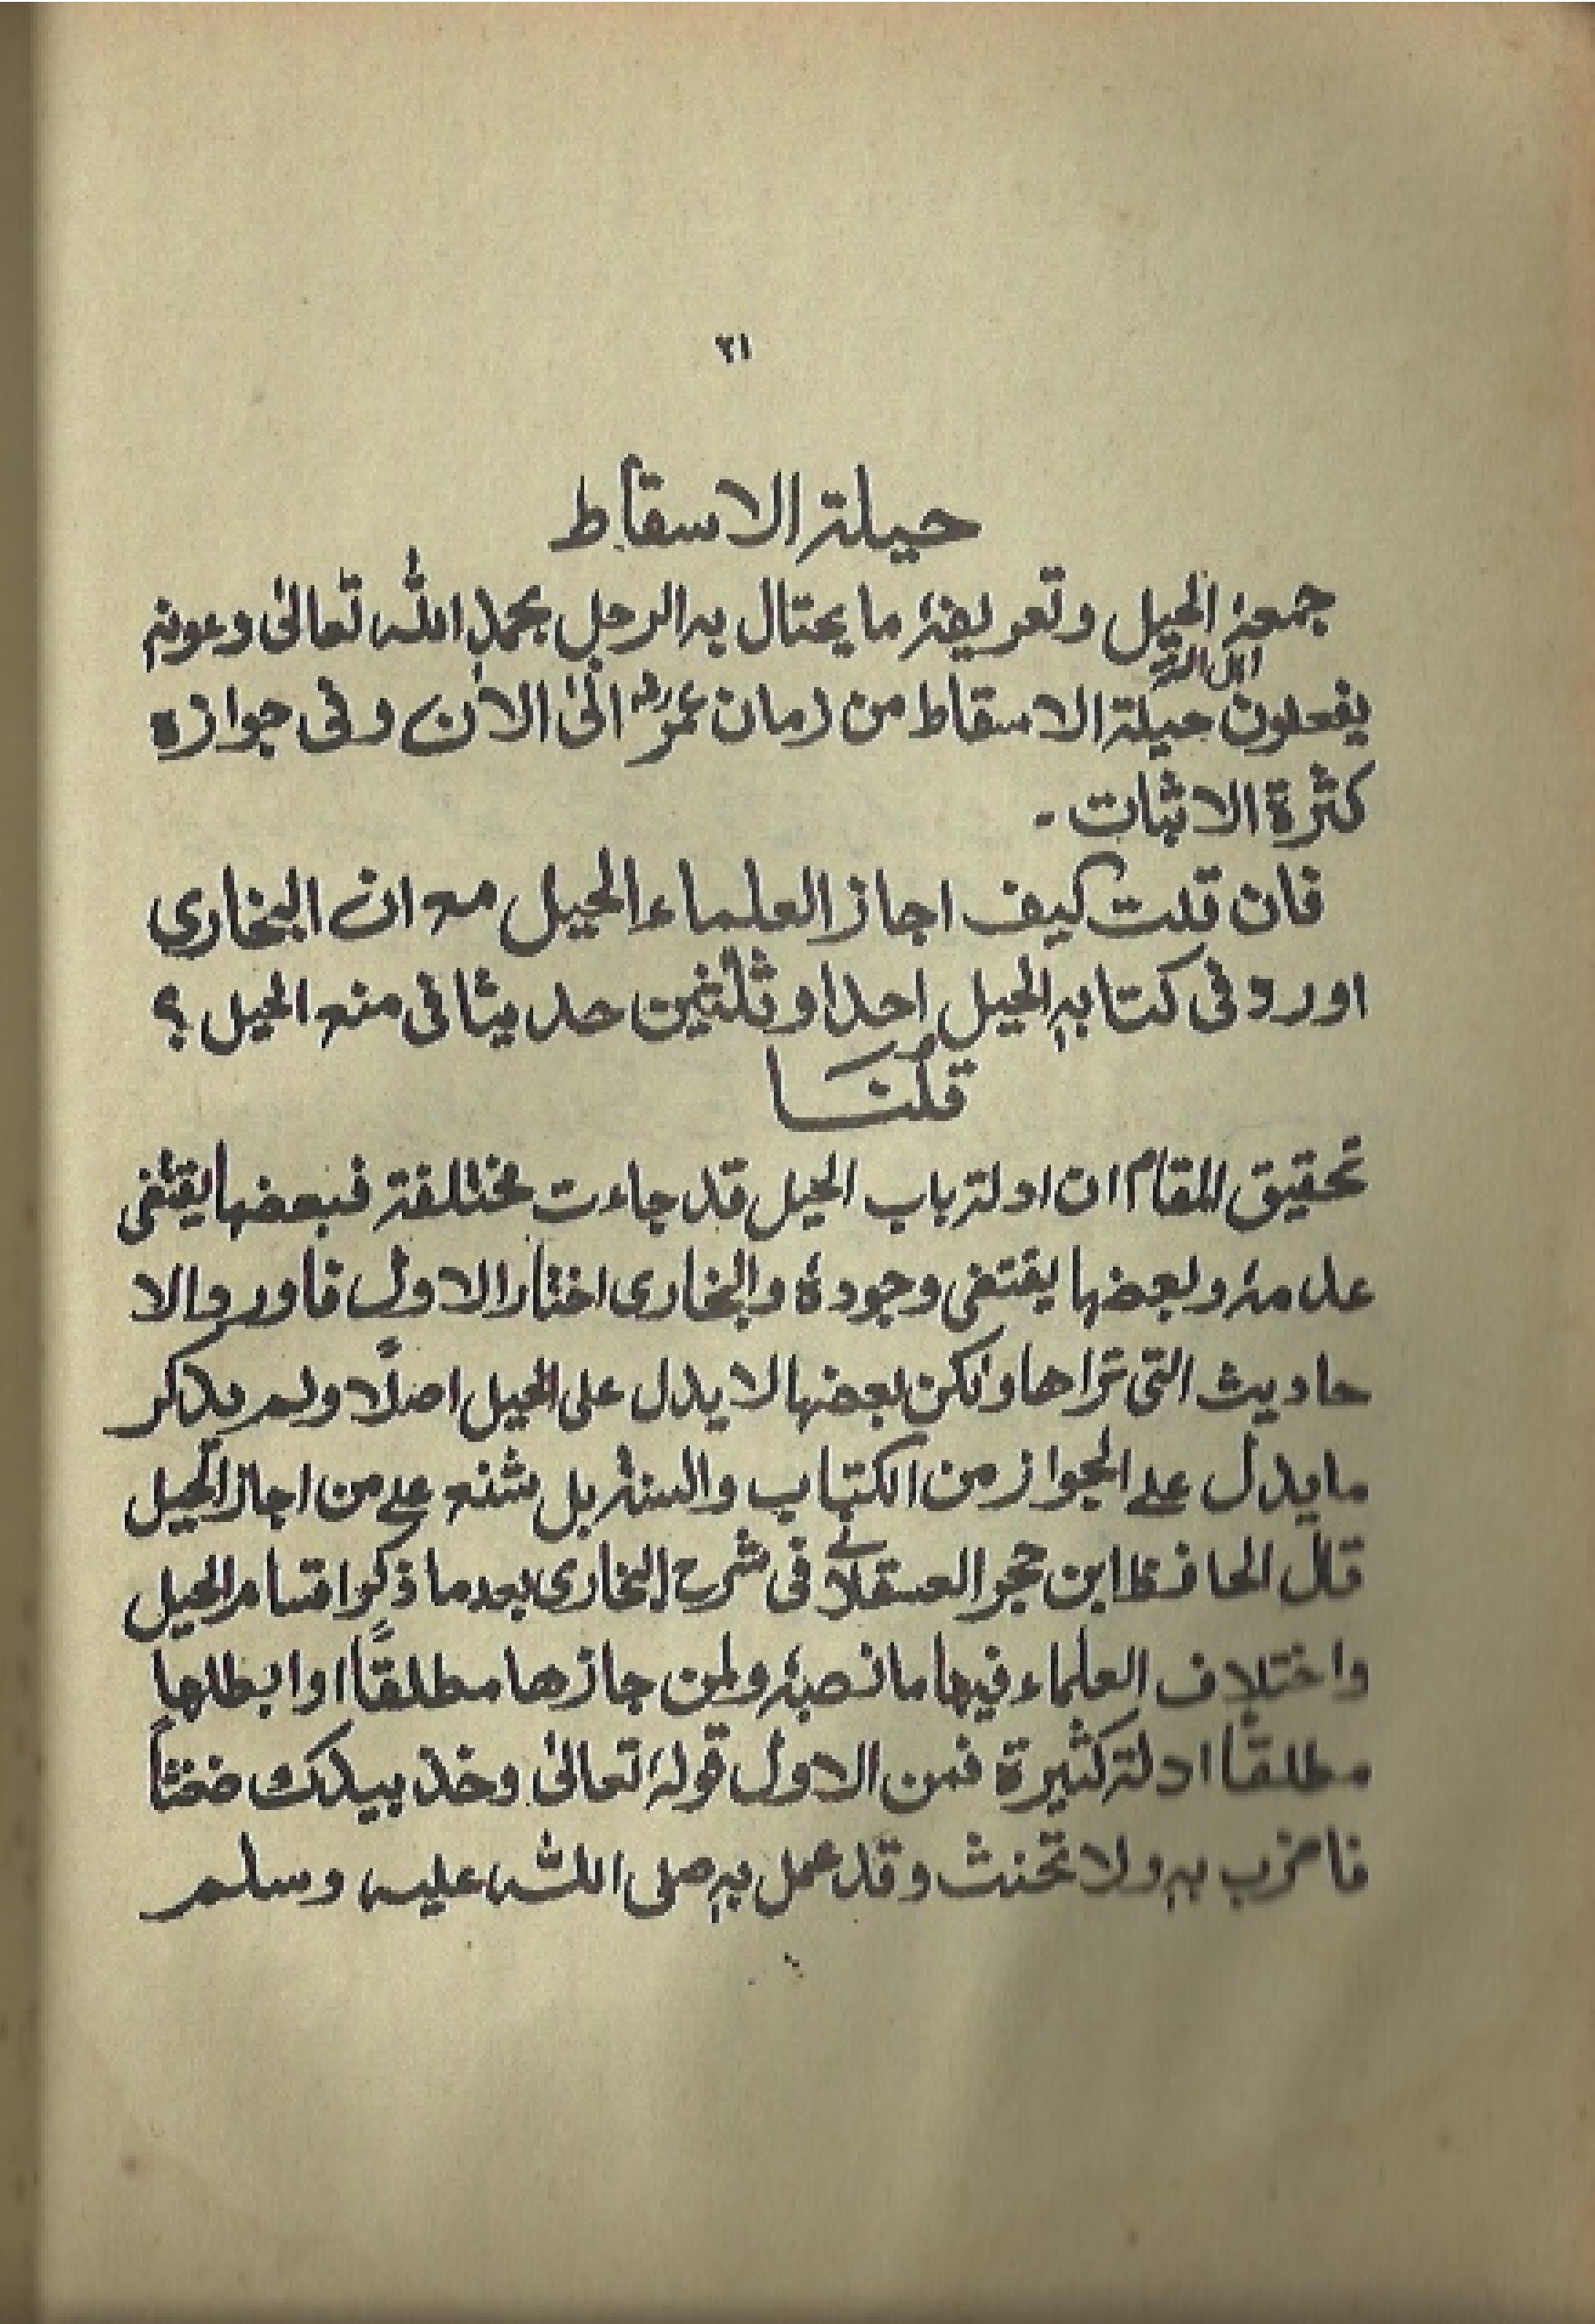 ٢١
حيلة الاسقاط
جمعه الحيل وتعريفه ما يحتال به الرجل بحمد الله تعالىٰ وعونه
اهل
يفعلون حيلة الاسقاط من زمان عمرؓ الىٰ الاٰن وفى جوازه
كثرة الاثبات -
فان قلت كيف اجاز العلماء الحيل مع ان البخارى
اورد فى كتابه الحيل احدا و ثلٰثين حديثا فى منع الحيل ؟
قلنا
تحقيق المقام ان ادلة باب الحيل قد جاءت مختلفة فبعضها يقتضى
عدمه وبعضها يقتضى وجوده والبخارى اختار الاول فاورد الا
حاديث التى تراها ولٰكن بعضها لا يدل على الحيل اصلاً ولم يذكر
ما يدل على الجواز من الكتاب والسنة بل شنع على من اجاز الحيل
قال الحافظ ابن حجر العسقلانى فى شرح البخارى بعد ما ذكر اقسام الحيل
واختلاف العلماء فيها ما نصه ولمن جازها مطلقاً او ابطلها
مطلقاً ادلة كثيرة فمن الاول قوله تعالىٰ وخذ بيدك ضغثاً
فاضرب به ولا تحنث وقد عمل به صلى الله عليه وسلم